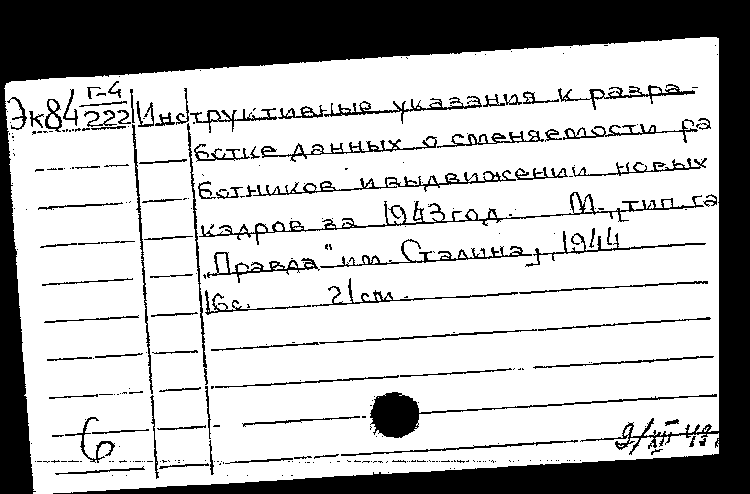 Эк84 Г-4/222 Инструктивные указания к разра-
ботке данных о сменяемости ра
ботников и выдвижении новых
кадров за 1943 год. М., тип. га
"Правда" им. Сталина, 1944
16с. 21см.
6
9/XII 49